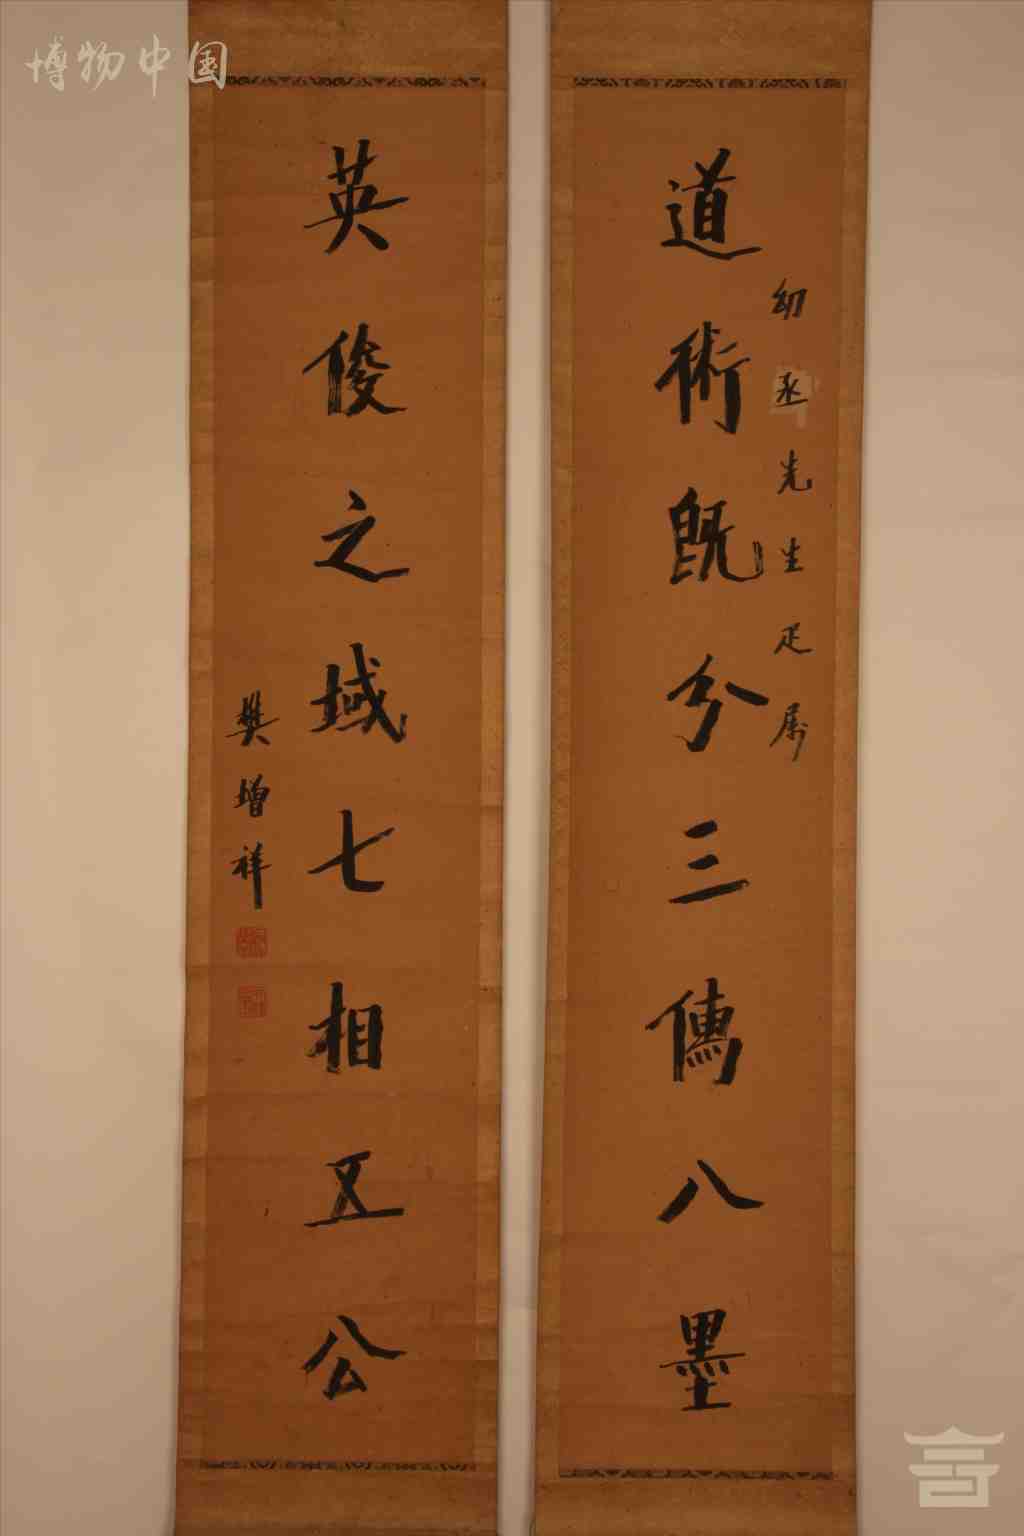 博物中国
幼丞先生疋属
道術既分三傳八墨
英俊之域七相五公
樊增祥